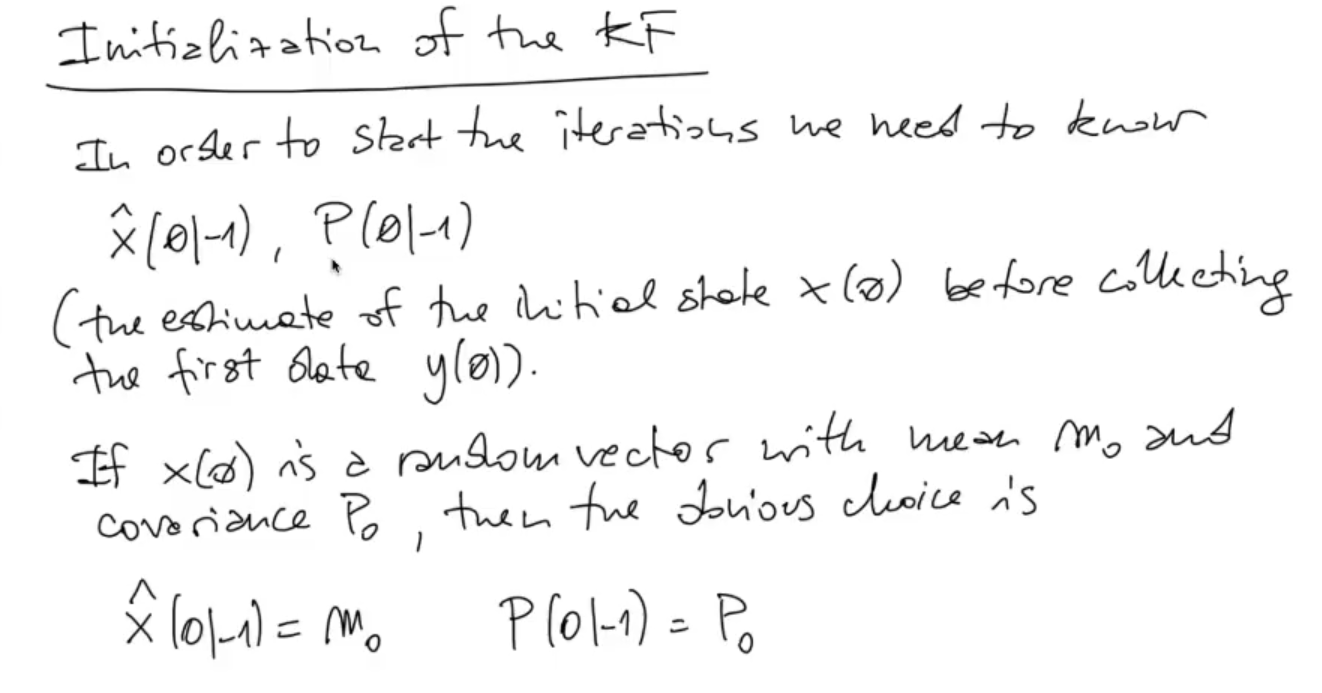 Initialization of the KF
In order to start the iterations we need to know
x̂(0|-1), P(0|-1)
(the estimate of the initial state x(0) before collecting
the first data y(0)).
If x(0) is a random vector with mean m₀ and
covariance P₀, then the obvious choice is
x̂(0|-1) = m₀ P(0|-1) = P₀